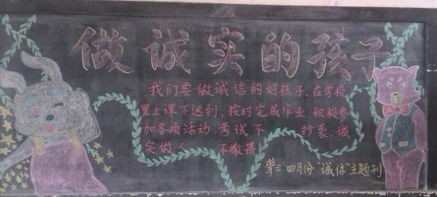 做诚实的孩子
我们要做诚信的好孩子,在学校
里上课不迟到,按时完成作业 积极参
加各项活动 考试不 抄袭 诚
实做人 不撒
第二四月份"诚信"主题刊